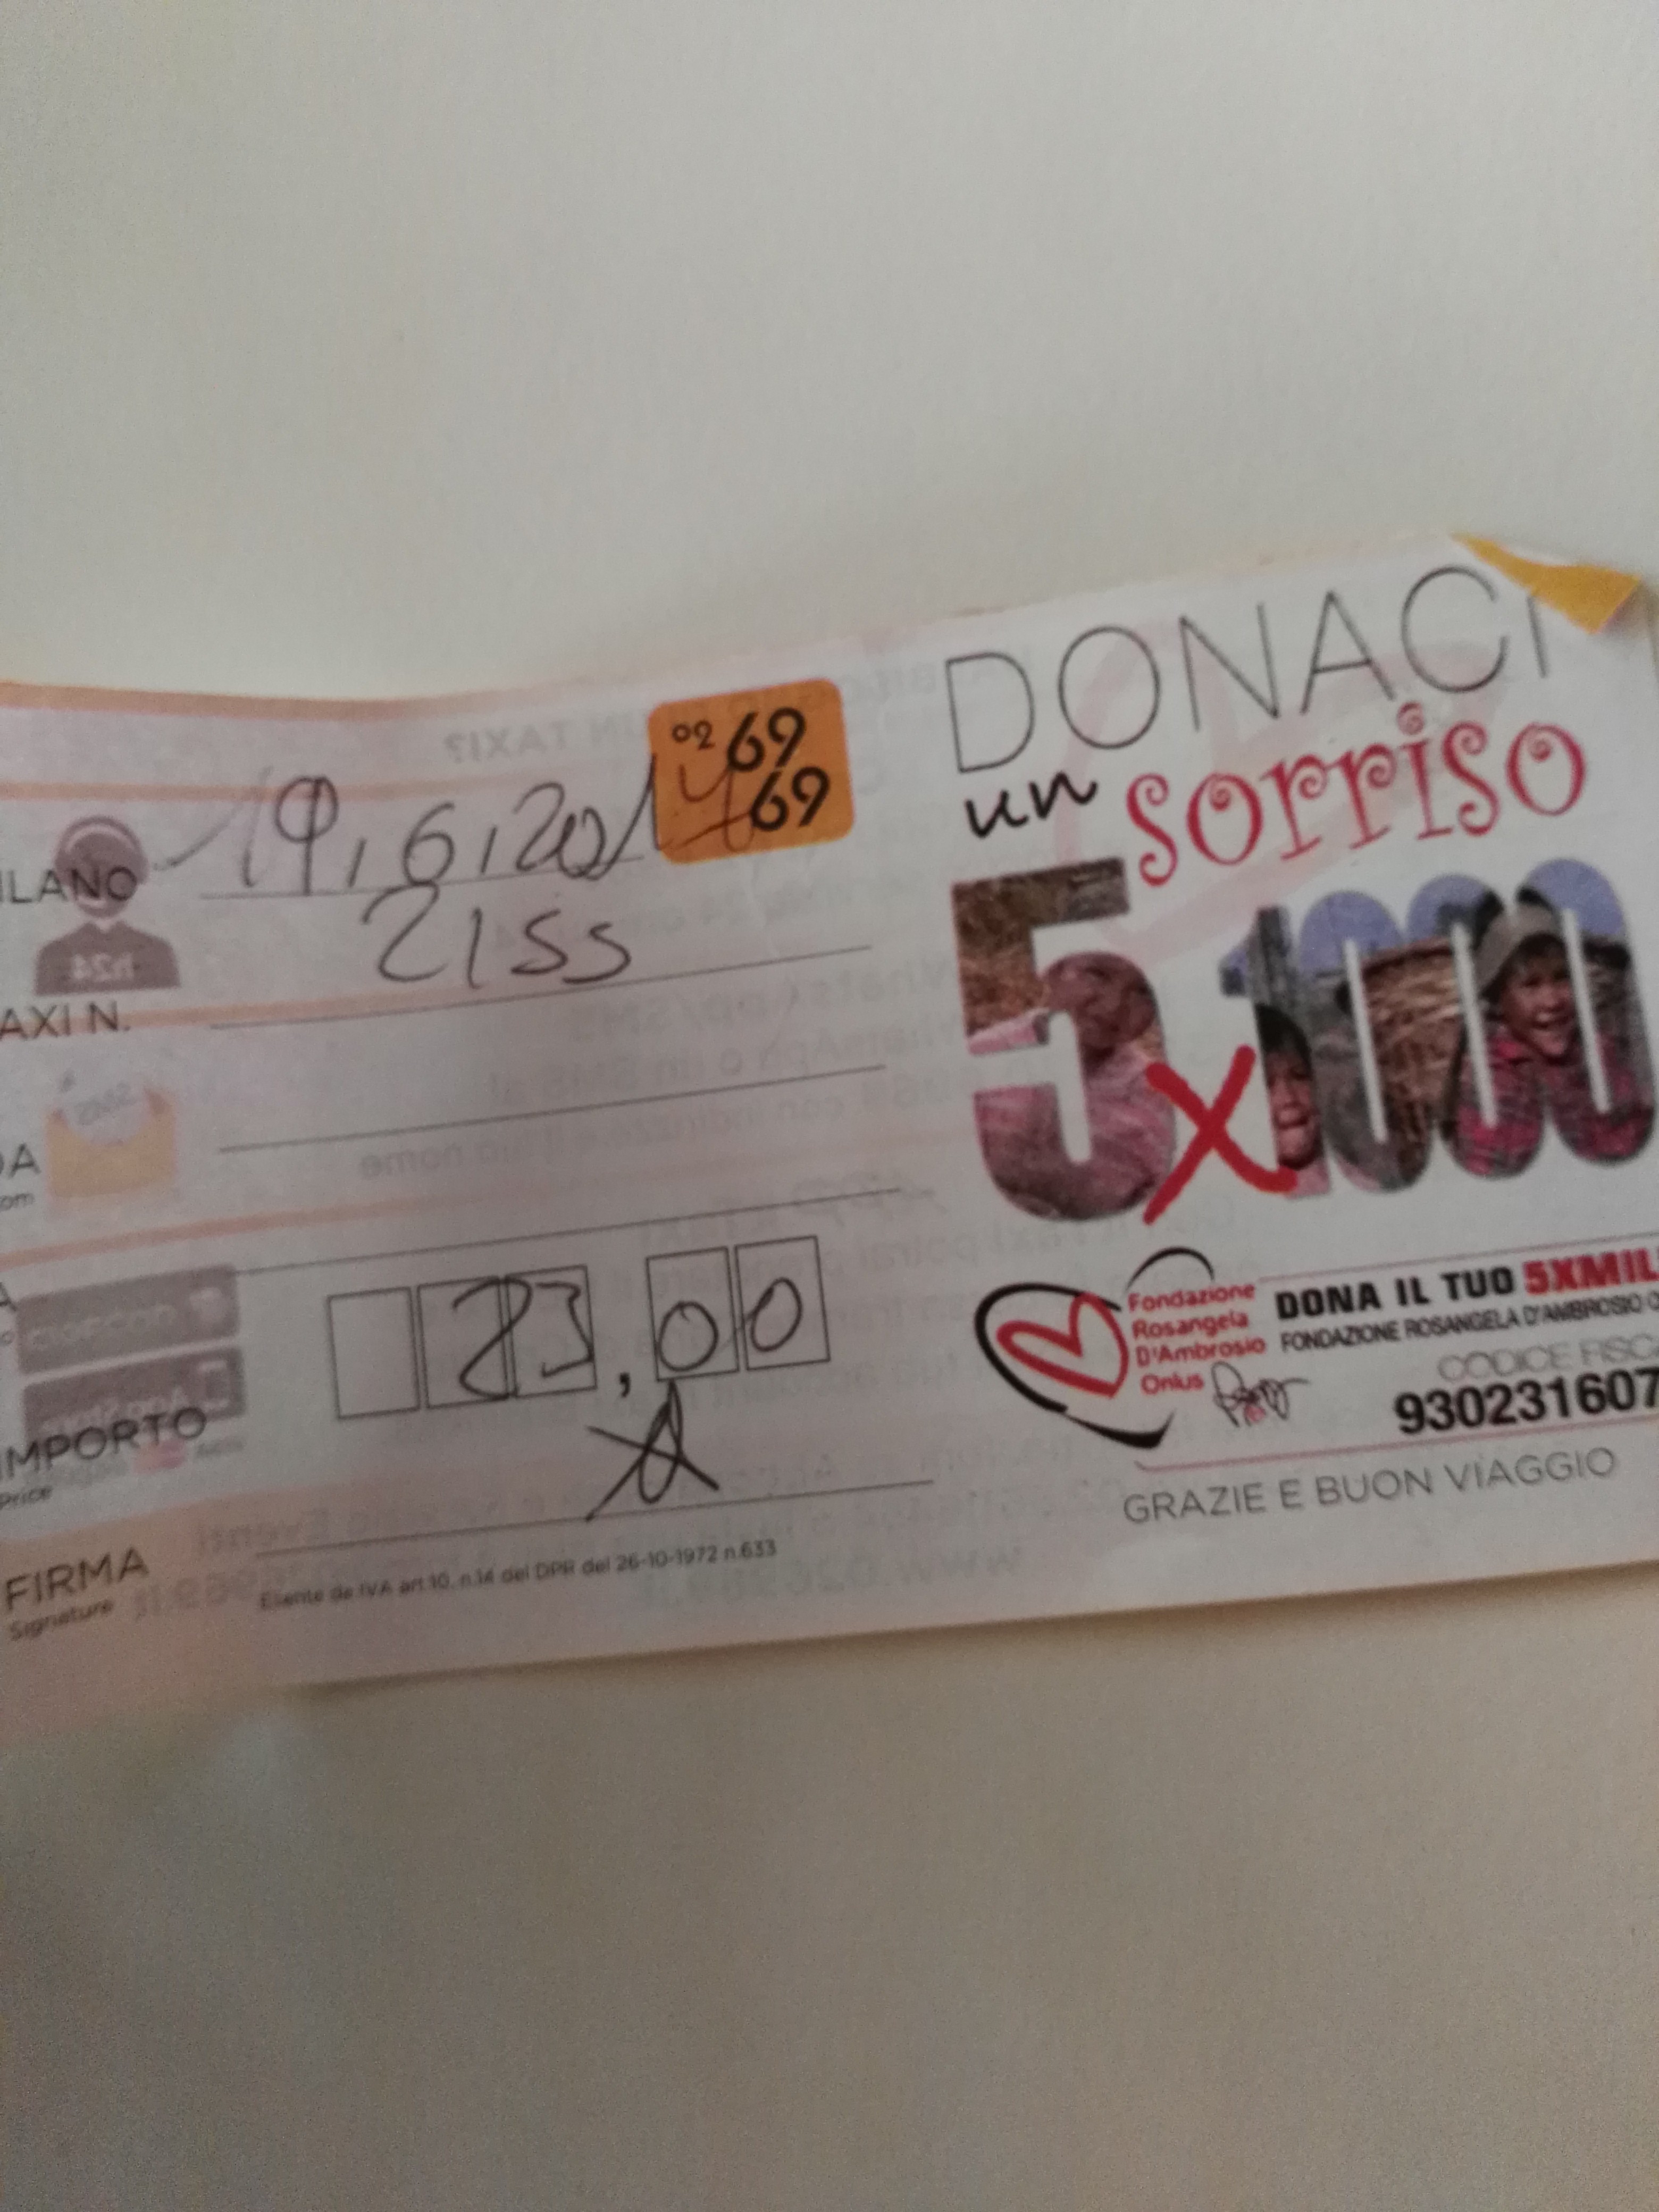 02 69
69
ILANO 19,6,201
AXI N. 2155
DA
om
A
IMPORTO 23,00
Price
FIRMA
Signature
Esente da IVA art.10, n.14 del DPR del 26-10-1972 n.633
DONACI
un sorriso
5x1000
Fondazione
Rosangela
D'Ambrosio
Onlus
DONA IL TUO 5XMIL
FONDAZIONE ROSANGELA D'AMBROSIO O
CODICE FISCA
930231607
GRAZIE E BUON VIAGGIO